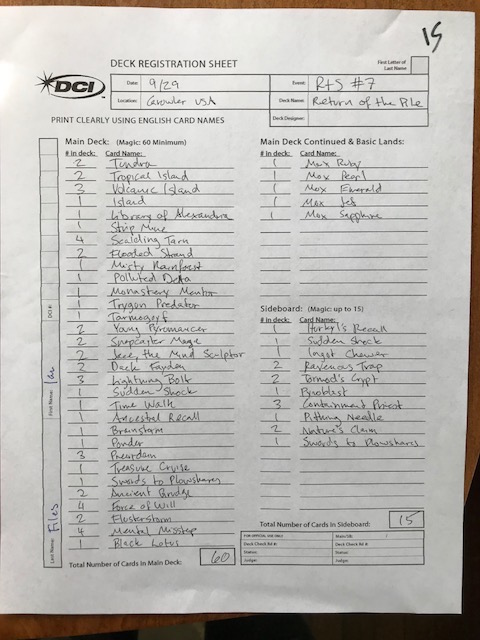 15
DECK REGISTRATION SHEET
First Letter of Last Name
DCI
Date: 9/29
Event: RtS #7
Location: Growler USA
Deck Name: Return of the Pile
Deck Designer:
PRINT CLEARLY USING ENGLISH CARD NAMES
Main Deck: (Magic: 60 Minimum)
# in deck: Card Name:
2 Tundra
2 Tropical Island
3 Volcanic Island
1 Island
1 Library of Alexandria
1 Strip Mine
4 Scalding Tarn
2 Flooded Strand
1 Misty Rainforest
1 Polluted Delta
1 Monastery Mentor
1 Trygon Predator
1 Tarmogoyf
2 Young Pyromancer
2 Snapcaster Mage
2 Jace, the Mind Sculptor
2 Dack Fayden
3 Lightning Bolt
1 Sudden Shock
1 Time Walk
1 Ancestral Recall
1 Brainstorm
1 Ponder
3 Preordain
1 Treasure Cruise
1 Swords to Plowshares
2 Ancient Grudge
4 Force of Will
2 Flusterstorm
4 Mental Misstep
1 Black Lotus
Total Number of Cards in Main Deck: 60
Main Deck Continued & Basic Lands:
# in deck: Card Name:
1 Mox Ruby
1 Mox Pearl
1 Mox Emerald
1 Mox Jet
1 Mox Sapphire
Sideboard: (Magic: up to 15)
# in deck: Card Name:
1 Hurkyl's Recall
1 Sudden Shock
1 Ingot Chewer
2 Ravenous Trap
2 Tormod's Crypt
1 Pyroblast
3 Containment Priest
1 Pithing Needle
2 Nature's Claim
1 Swords to Plowshares
Total Number of Cards in Sideboard: 15
FOR OFFICIAL USE ONLY
Main/SB: /
Deck Check Rd #:
Deck Check Rd #:
Status:
Status:
Judge:
Judge:
DCI #:
First Name: Ian
Last Name: Files